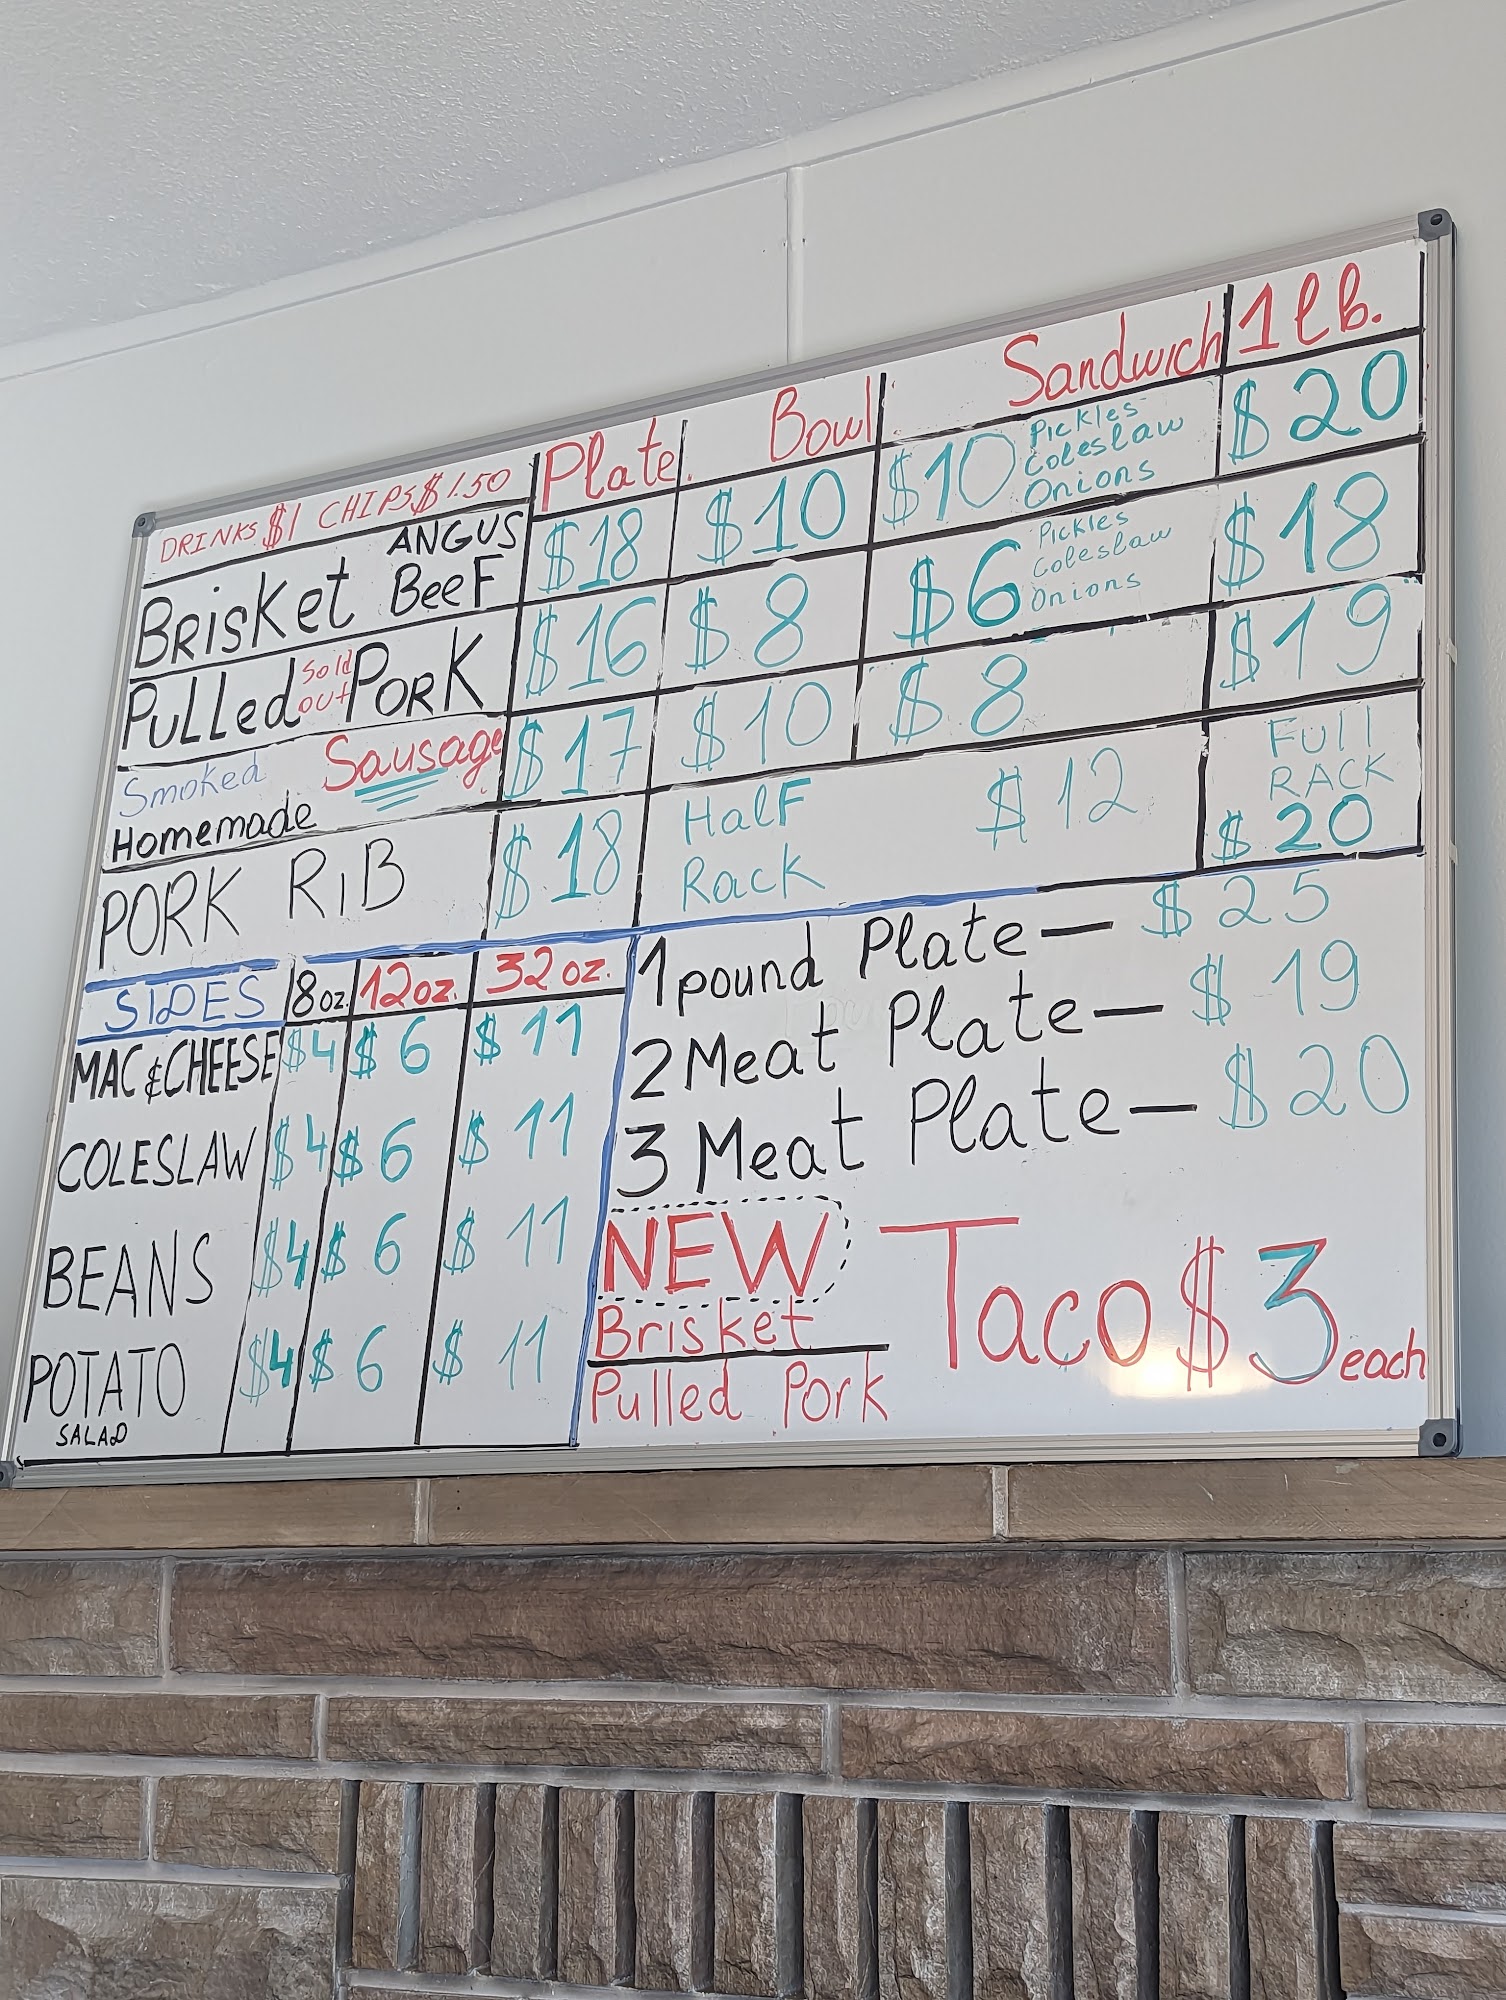 DRINKS $1 CHIPS $1.50 Plate Bowl Sandwich 1 lb.
Brisket ANGUS BeeF $18 $10 $10 Pickles Coleslaw Onions $20
Pulled Sold out Pork $16 $8 $6 Pickles Coleslaw Onions $18
Smoked Homemade Sausage $17 $10 $8 $19
PORK RiB $18 HalF Rack $12 Full RACK $20
SIDES 8 oz. 12 oz. 32 oz.
MAC & CHEESE $4 $6 $11
COLESLAW $4 $6 $11
BEANS $4 $6 $11
POTATO SALAD $4 $6 $11
1 pound Plate — $25
2 Meat Plate — $19
3 Meat Plate — $20
NEW
Brisket
Pulled Pork
Taco $3 each